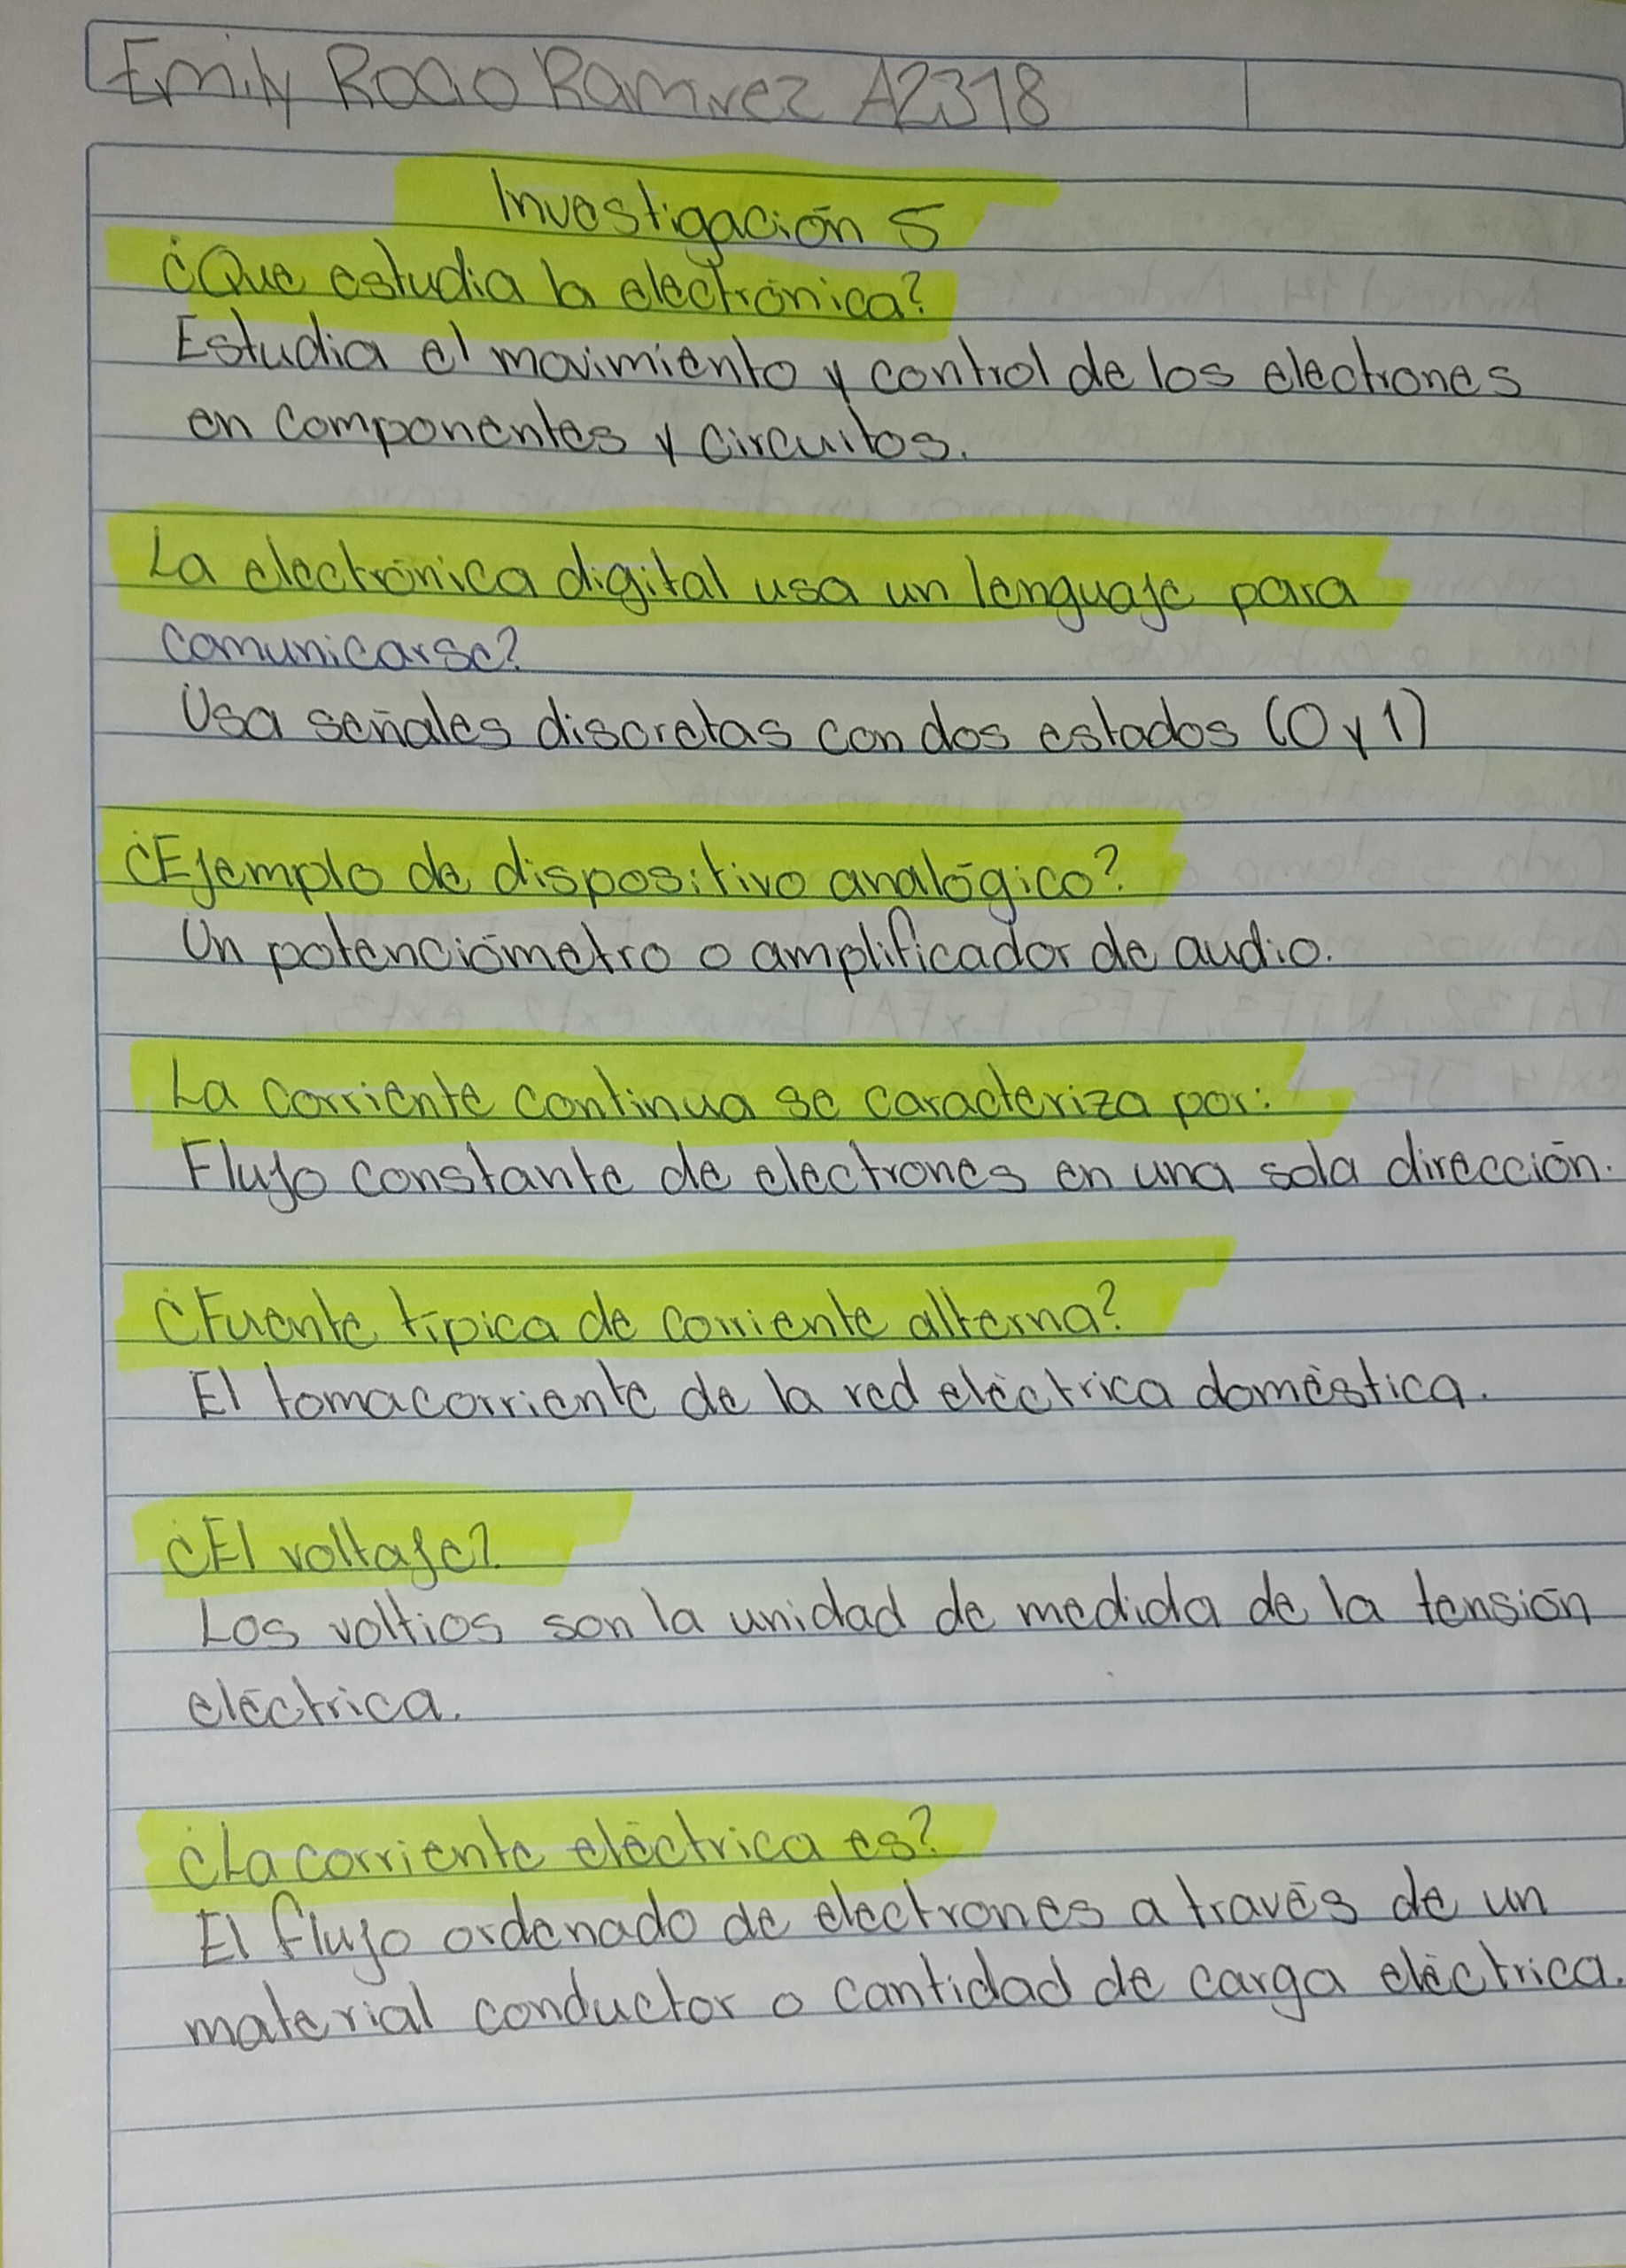 Emily Rocio Ramirez A2318
Investigación 5
¿Que estudia la electrónica?
Estudia el movimiento y control de los electrones
en componentes y circuitos.
La electrónica digital usa un lenguaje para
comunicarse?
Usa señales discretas con dos estados (0 y 1)
¿Ejemplo de dispositivo analógico?
Un potenciómetro o amplificador de audio.
La corriente continua se caracteriza por:
Flujo constante de electrones en una sola dirección.
¿Fuente típica de corriente alterna?
El tomacorriente de la red eléctrica doméstica.
¿El voltaje?
Los voltios son la unidad de medida de la tensión
eléctrica.
¿La corriente eléctrica es?
El flujo ordenado de electrones a través de un
material conductor o cantidad de carga eléctrica.